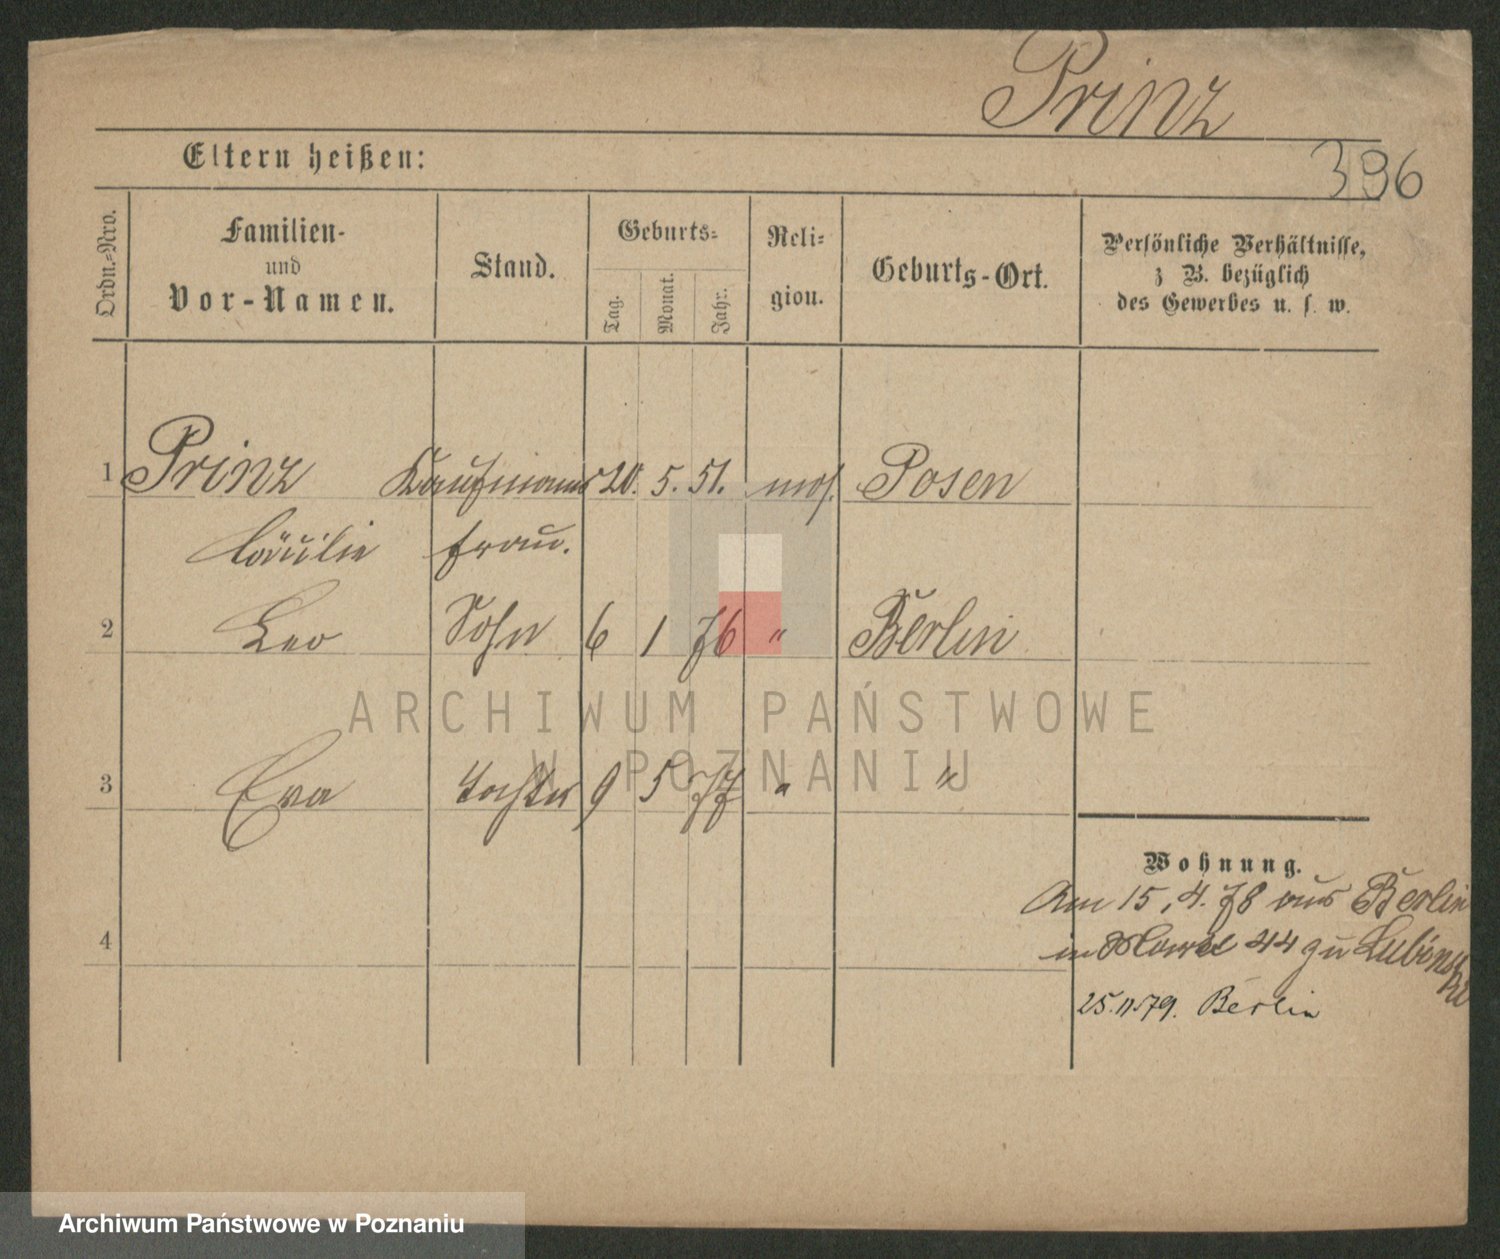 Prinz
396
Eltern heißen:
Ordn.-Nro.
Familien-
und
Vor-Namen.
Stand.
Geburts-
Tag.
Monat.
Jahr.
Reli-
gion.
Geburts-Ort.
Persönliche Verhältnisse,
z B. bezüglich
des Gewerbes u. s. w.
1 Prinz Kaufmanns 20. 5. 51. mos. Posen
frau.
2 Leo Sohn 6 1 76 " Berlin
3 Eva Tochter 9 5 77 " "
Wohnung.
Am 15.4.78 aus Berlin
in 44 zu
4
25.11.79. Berlin
ARCHIWUM PAŃSTWOWE
W POZNANIU
Archiwum Państwowe w Poznaniu